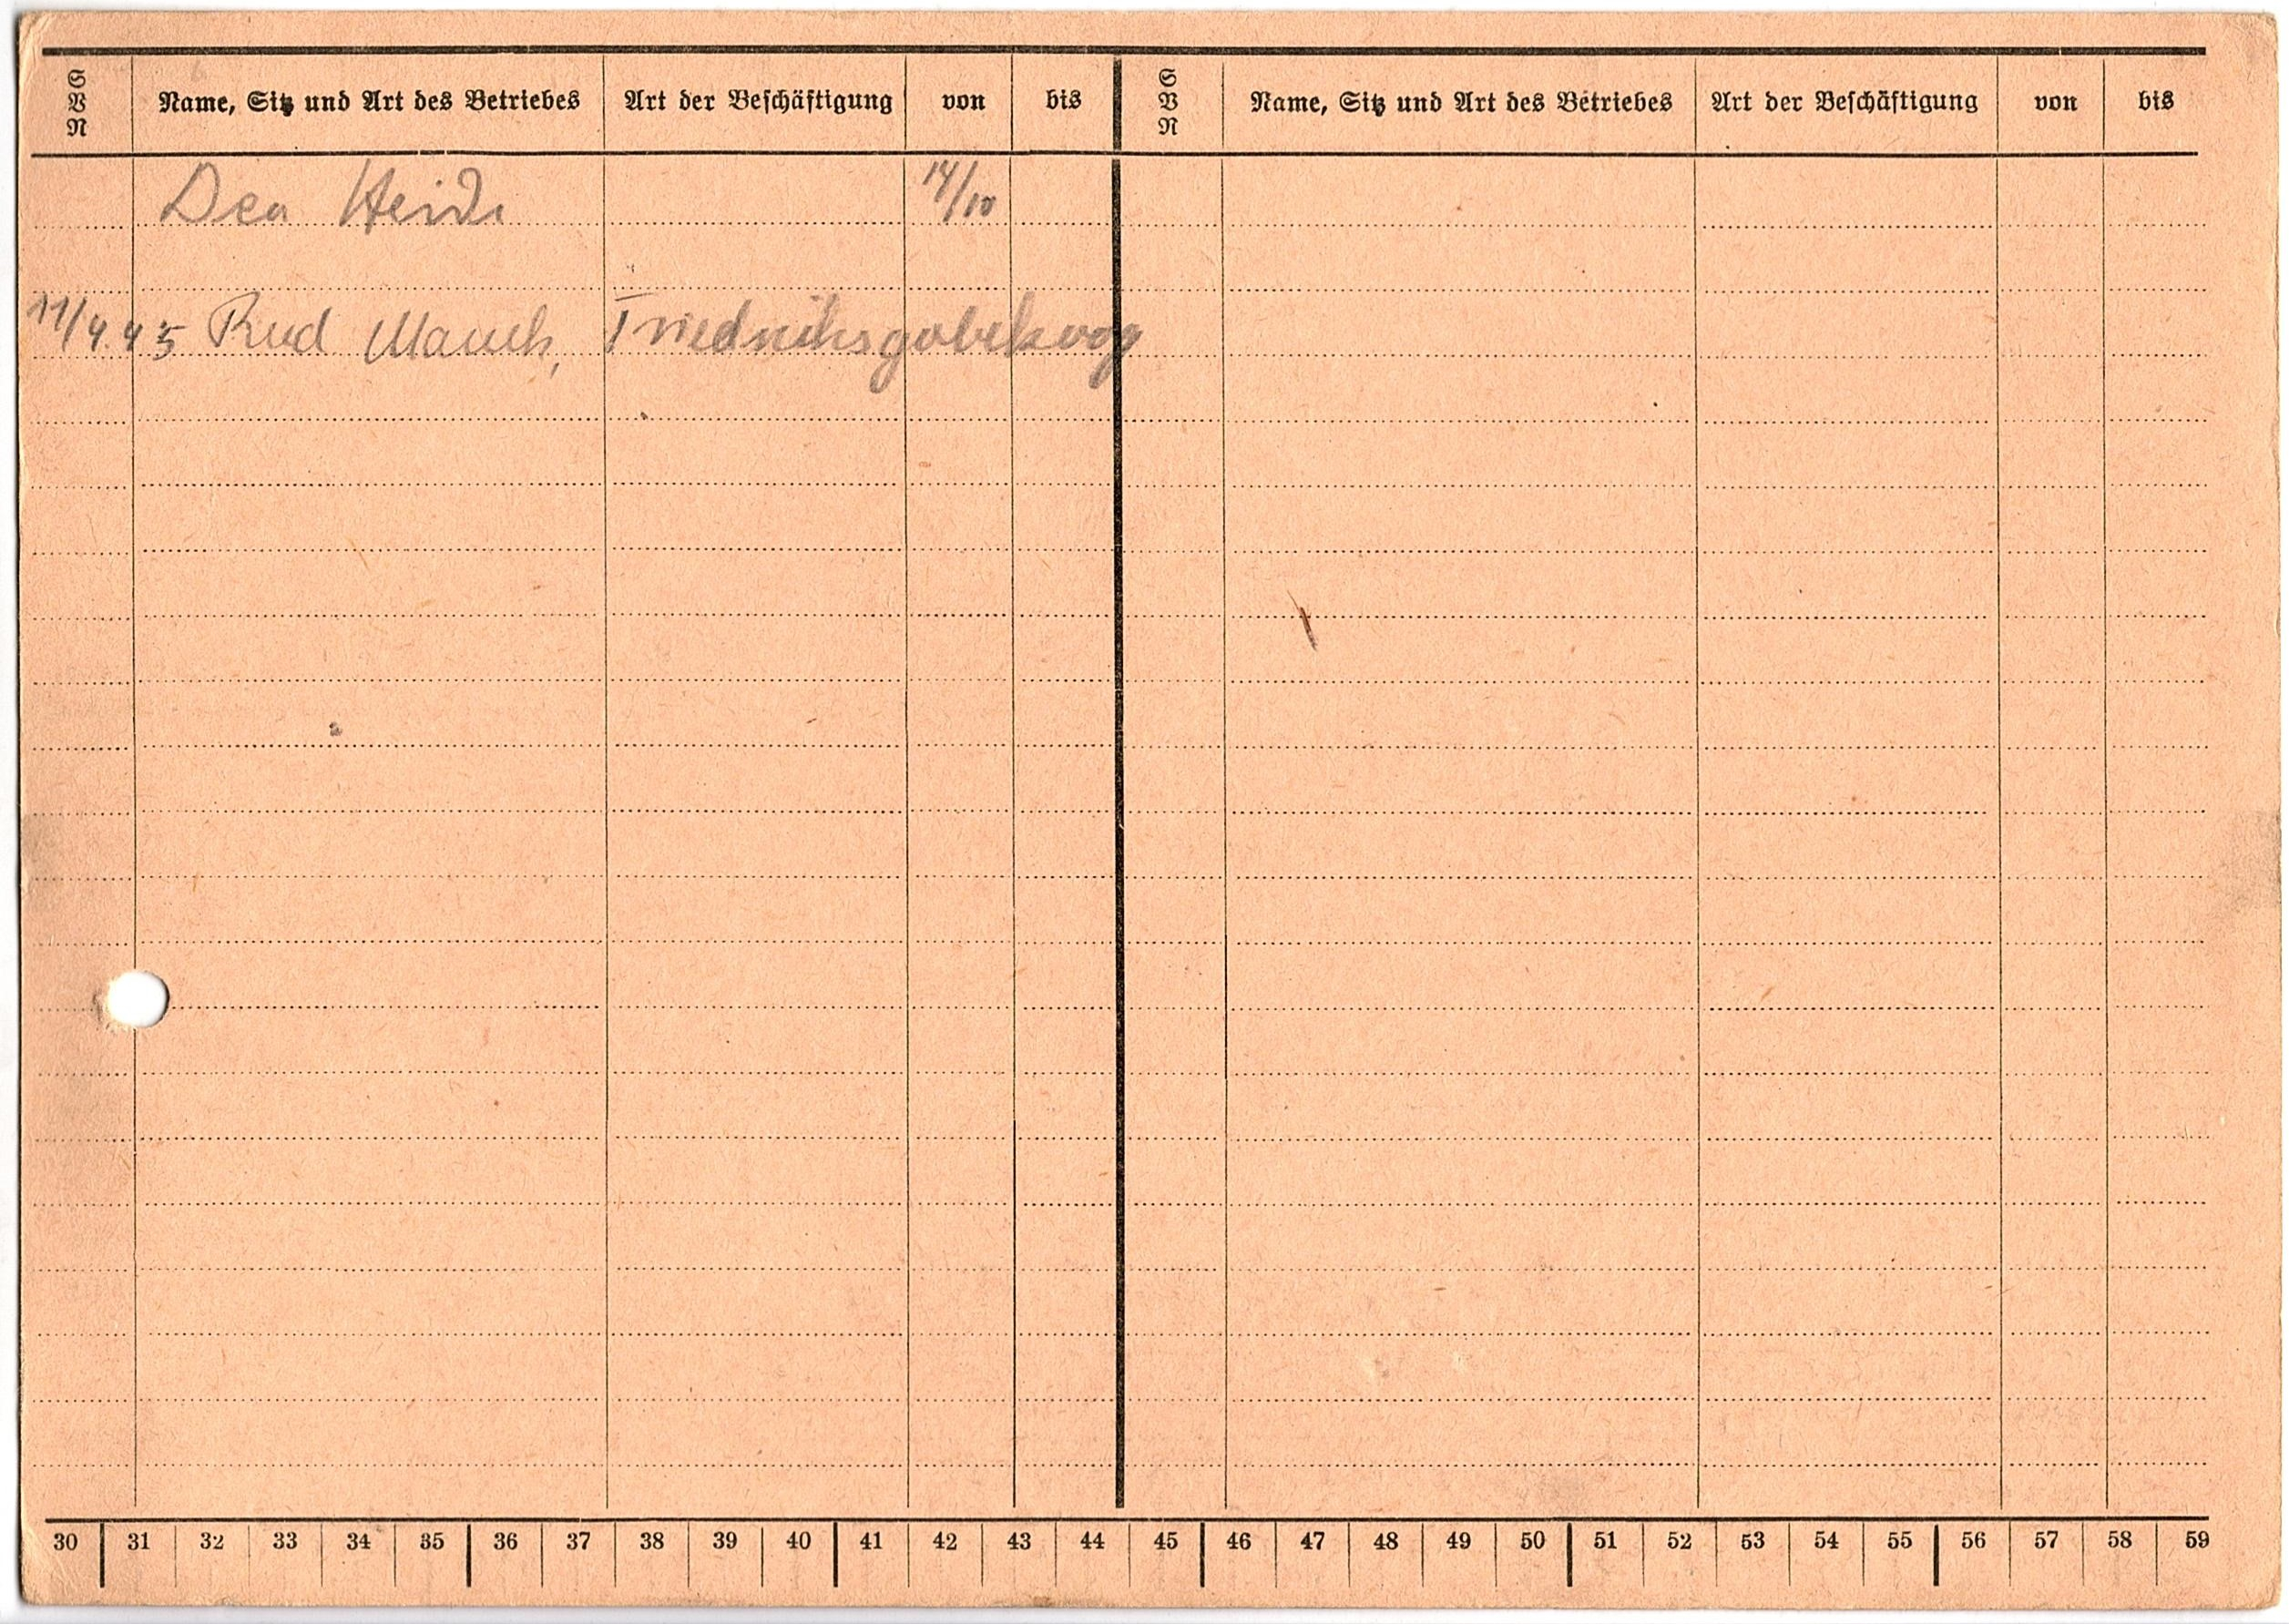 S V N Name, Sitz und Art des Betriebes Art der Beschäftigung von bis S V N Name, Sitz und Art des Betriebes Art der Beschäftigung von bis
Dea Heide 14/10
11/4.45 Rud Mauch, Friedrichsgabekoog
30 31 32 33 34 35 36 37 38 39 40 41 42 43 44 45 46 47 48 49 50 51 52 53 54 55 56 57 58 59